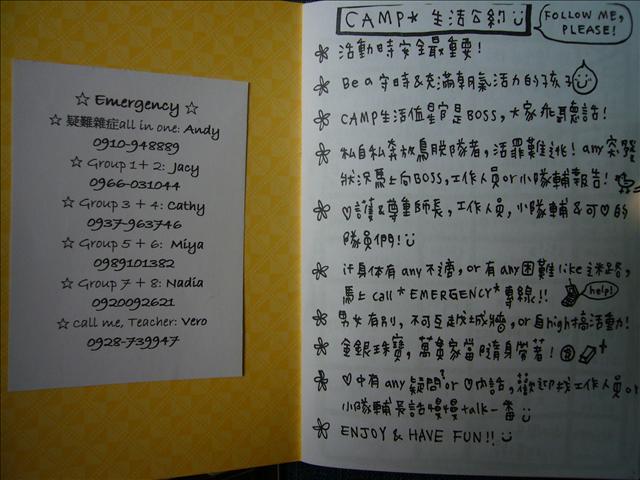 ☆ Emergency ☆
☆ 疑難雜症all in one: Andy
0910-948889
☆ Group 1 + 2: Jacy
0966-031044
☆ Group 3 + 4: Cathy
0937-963746
☆ Group 5 + 6: Miya
0989101382
☆ Group 7 + 8: Nadia
0920092621
☆ call me, Teacher: Vero
0928-739947
CAMP* 生活公約
FOLLOW ME,
PLEASE!
活動時安全最重要!
Be a 守時&充滿朝氣活力的孩子
CAMP生活值星官是BOSS,大家亦需聽話!
私自私奔放鳥脫隊者,活罪難逃! any 突發
狀況馬上向BOSS,工作人員or小隊輔報告!
♡護&尊重師長,工作人員,小隊輔&可♡的
隊員們!
if身体有any不適,or有any困難like迷路,
馬上call*EMERGENCY*專線!!
help!
男女有別,不可互越城牆,or自high搞活動!
金銀珠寶,萬貫家當隨身帶著!
♡中有any疑問?or♡內話,歡迎找工作人員or
小隊輔長話慢慢talk一番
ENJOY & HAVE FUN!!